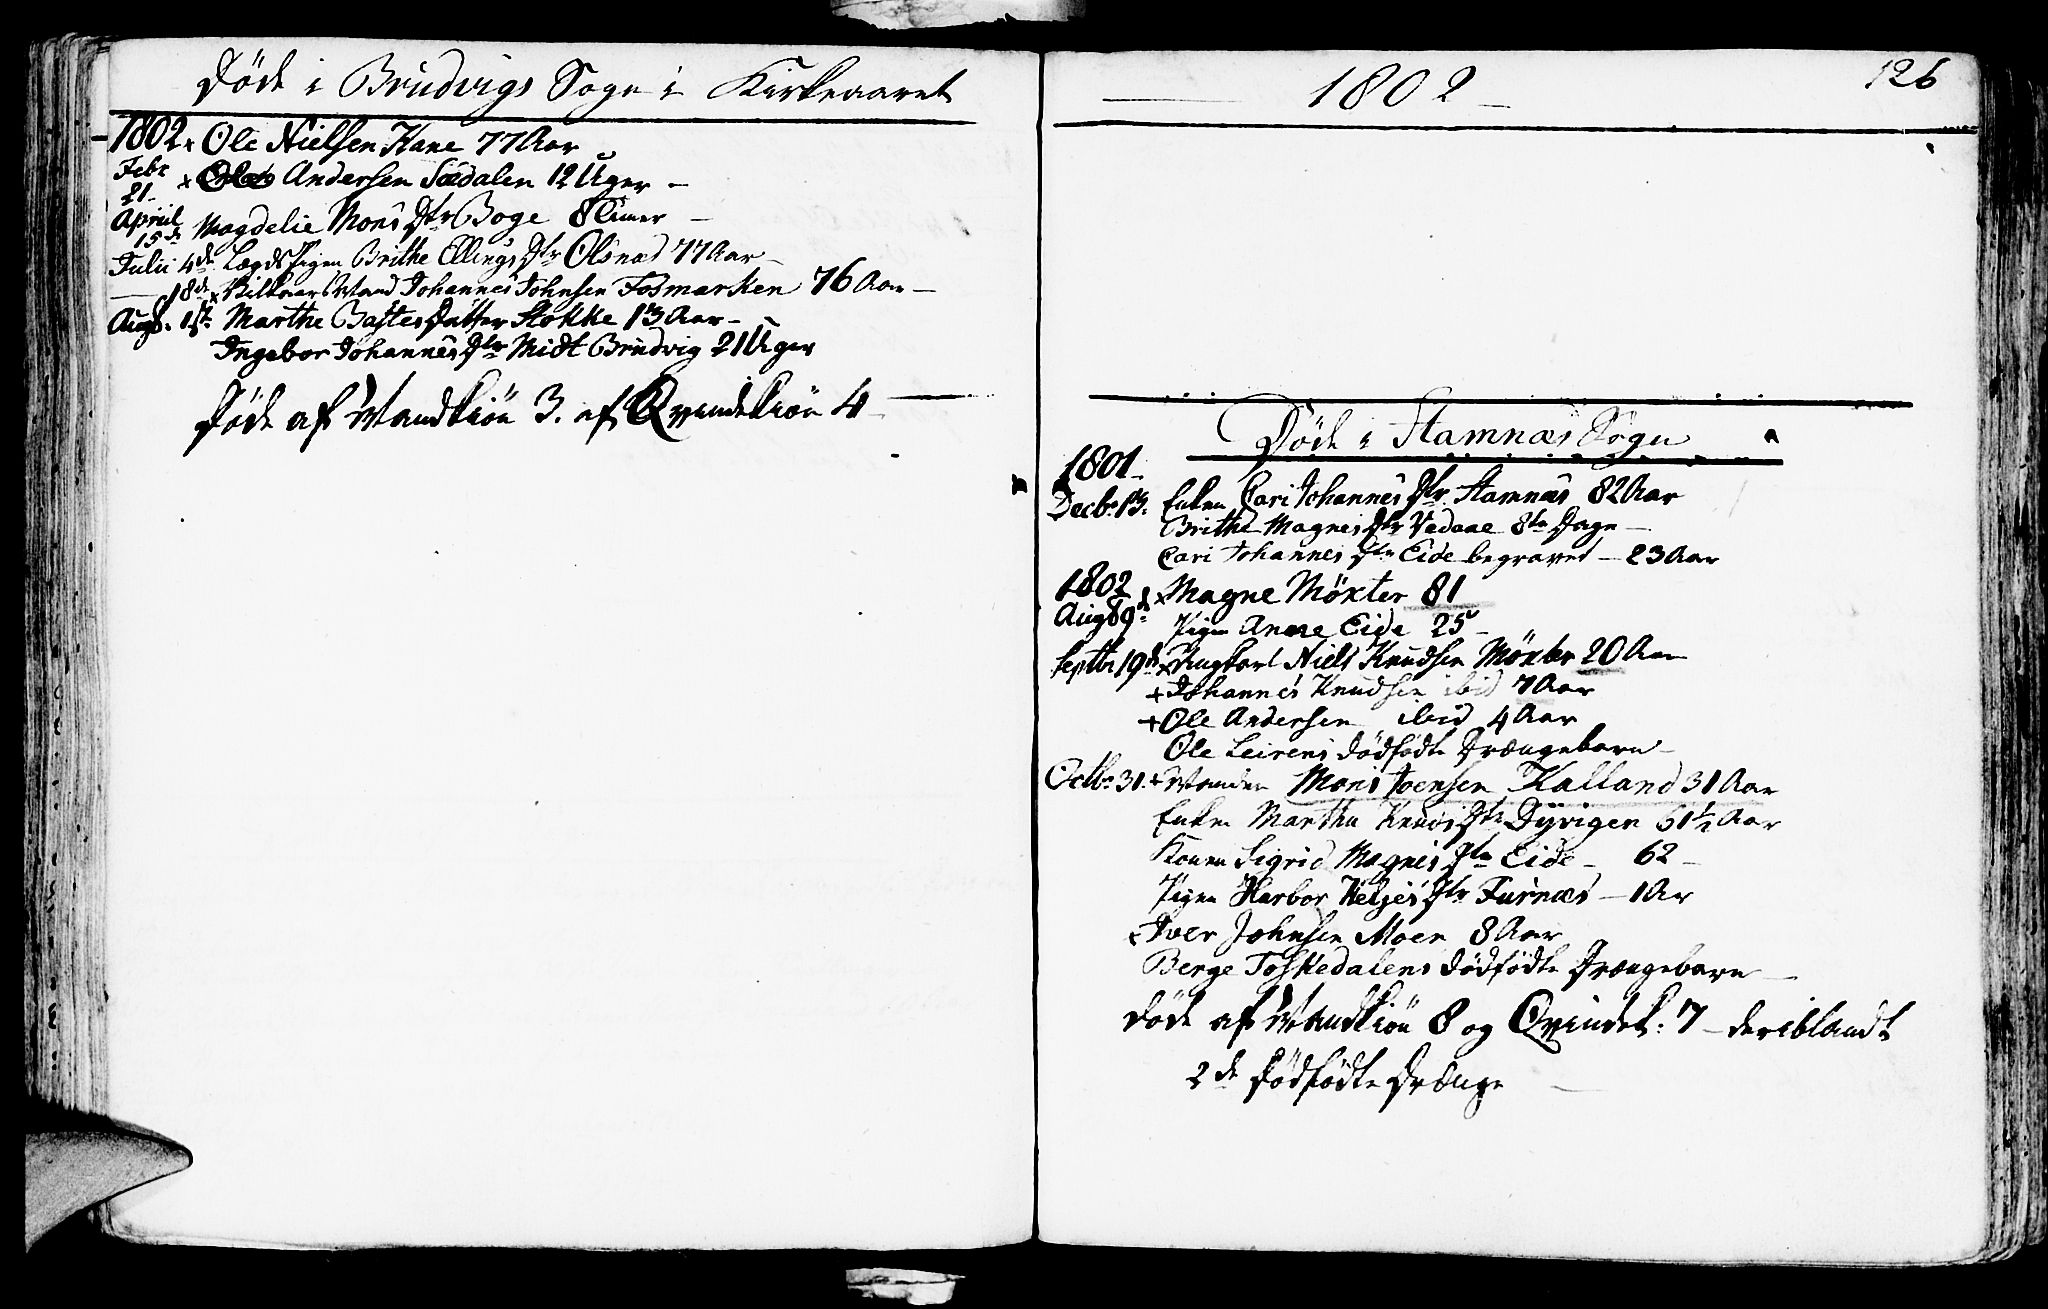 Døde i Brudvigs Sogn i Kirkeaaret
1802 x Ole Nielsen Kane 77 Aar
Febr 21 x Andersen Sædalen 12 Uger –
Apriil 15de Magdelie Mons Dtr Boge 8 Timer –
Julii 4de Lægds Pigen Brithe Ellings Dtr Olsnæs 77 Aar –
— 18de x Kilkaars Mand Johannes Johnsen Fosmarken 76 Aar –
Aug: 1ste Marthe Bastes Datter Stokke 13 Aar –
Ingebor Johannes Dtr Midt Brudvig 21 Uger
Døde af Mandkiøn 3. af Qvindekiøn 4 –
1802 –
126
Døde i Stamnæs Sogn
1801 –
Decbr 13. Enken Cari Johannes Dtr Stamnæs 82 Aar
Brithe Magnes Dtr Vedaae 8te Dage –
Cari Johannes Dtr Eide begravet – 23 Aar
1802
Aug 89de x Magne Møxter 81
Pigen Anne Eide 25 –
Septbr 19de x Ungkarl Niels Knudsen Møxter 20 Aar
+ Johannes Knudsen ibid 7 Aar
+ Ole Andersen ibid 4 Aar
Ole Leirens dødfødte Drængebarn –
Octbr 31. + Manden Mons Joensen Kalland 31 Aar
Enken Martha Knuds Dtr Dyvigen 61½ Aar
Konen Sigrid Magnes Dtr Eide – 62 –
Pigen Harbor Heljes Dtr Furnæs – 1 Ar
x Iver Johnsen Moen 8 Aar
Berge Toskedalens dødfødte Drængebarn –
Døde af Mandkiøn 8 og Qvindek: 7 – deriblandt
2de dødfødte Drænge –